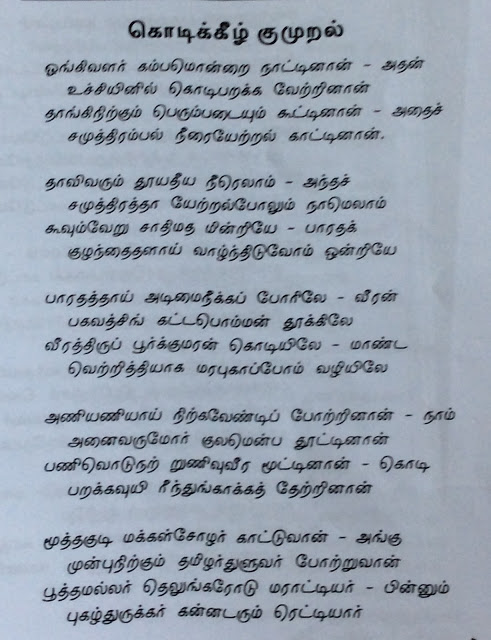 கொடிக்கீழ் குமுறல்
ஓங்கிவளர் கம்பமொன்றை நாட்டினான் - அதன்
உச்சியினில் கொடிபறக்க வேற்றினான்
தாங்கிநிற்கும் பெரும்படையும் கூட்டினான் - அதைச்
சமுத்திரம்பல் நீரையேற்றல் காட்டினான்.
தாவிவரும் தூயதீய நீரெலாம் - அந்தச்
சமுத்திரத்தா யேற்றல்போலும் நாமெலாம்
கூவும்வேறு சாதிமத மின்றியே - பாரதக்
குழந்தைதளாய் வாழ்ந்திடுவோம் ஒன்றியே
பாரதத்தாய் அடிமைநீக்கப் போரிலே - வீரன்
பகவத்சிங் கட்டபொம்மன் தூக்கிலே
வீரத்திருப் பூர்க்குமரன் கொடியிலே - மாண்ட
வெற்றித்தியாக மரபுகாப்போம் வழியிலே
அணியணியாய் நிற்கவேண்டிப் போற்றினான் - நாம்
அனைவருமோர் குலமென்ப தூட்டினான்
பணிவொடுநற் றுணிவுவீர மூட்டினான் - கொடி
பறக்கவுயி ரீந்துங்காக்கத் தேற்றினான்
மூத்தகுடி மக்கள்சோழர் காட்டுவான் - அங்கு
முன்புநிற்கும் தமிழர்துளுவர் போற்றுவான்
பூத்தமல்லர் தெலுங்கரோடு மராட்டியர் - பின்னும்
புகழ்துருக்கர் கன்னடரும் ரெட்டியார்